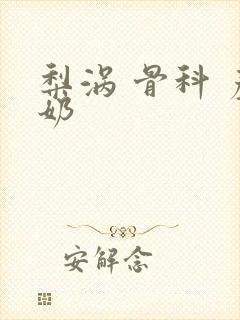 梨涡 骨科
奶
安解念